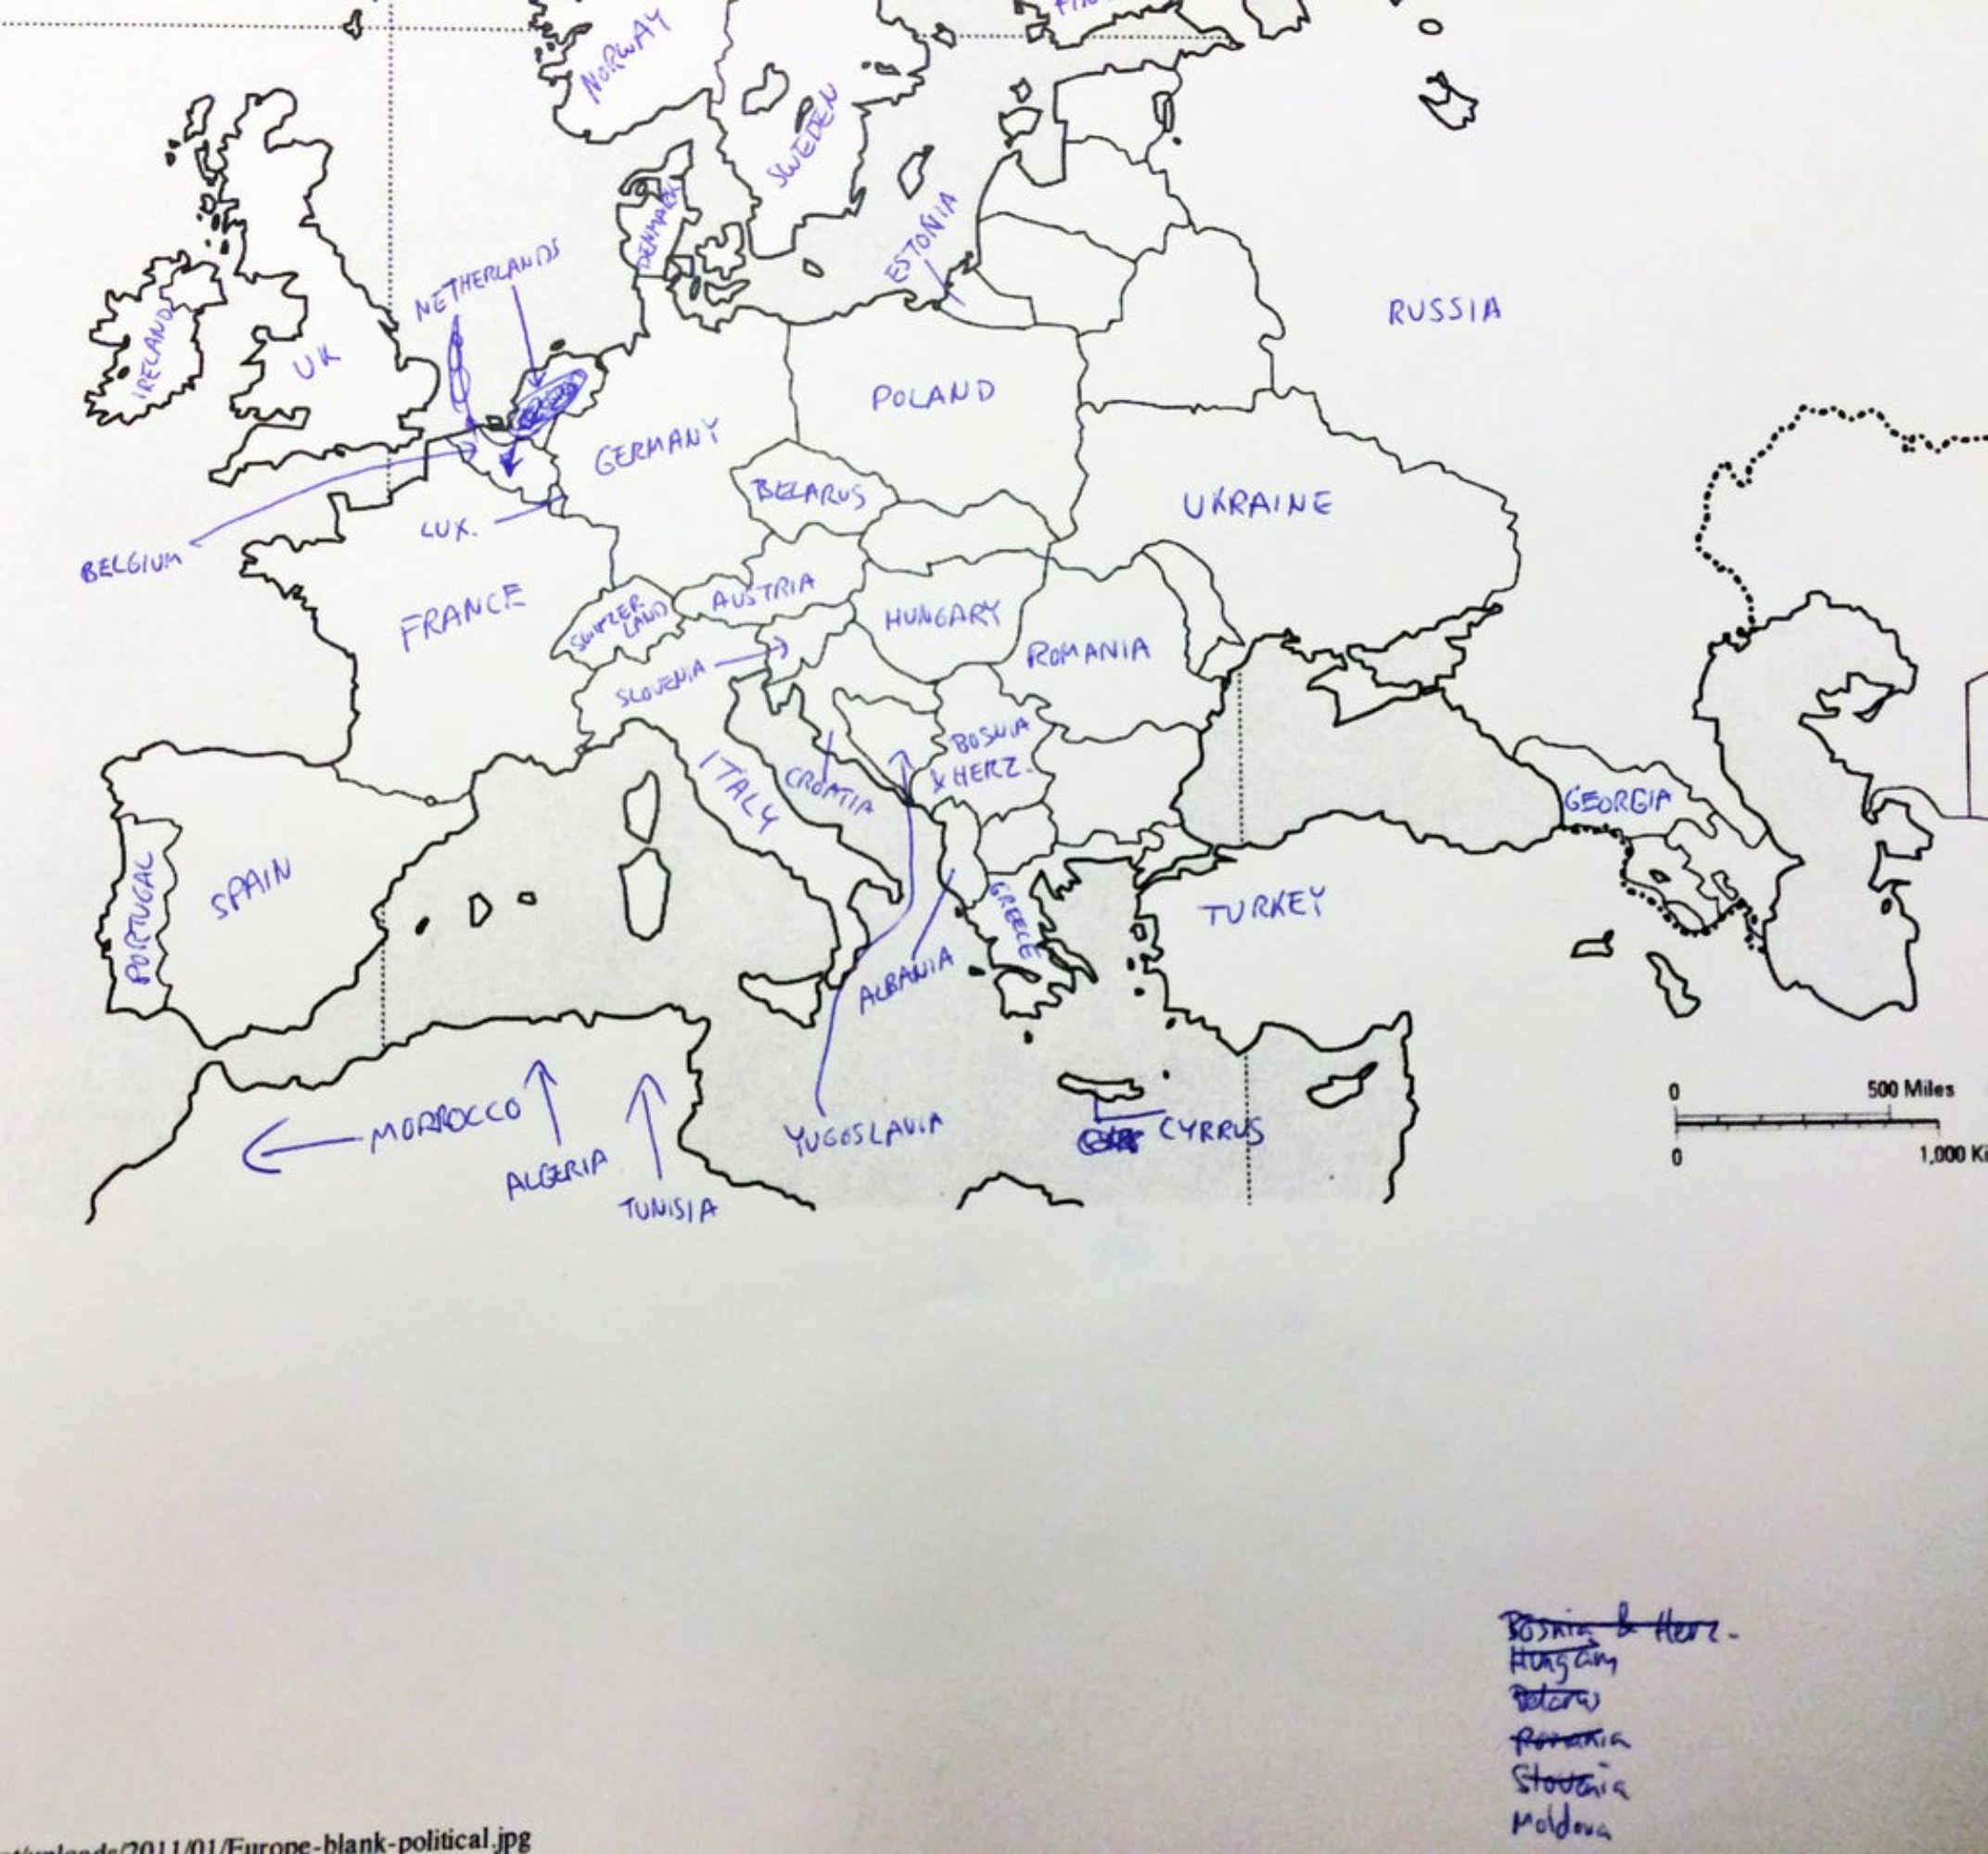 NORWAY
SWEDEN
DENMARK
ESTONIA
NETHERLANDS
IRELAND
UK
RUSSIA
POLAND
GERMANY
BELARUS
UKRAINE
LUX.
BELGIUM
FRANCE
SWITZER
LAND
AUSTRIA
HUNGARY
ROMANIA
SLOVENIA
BOSNIA
& HERZ.
ITALY
CROATIA
GEORGIA
PORTUGAL
SPAIN
GREECE
TURKEY
ALBANIA
MORROCCO
ALGERIA
TUNISIA
YUGOSLAVIA
CYRRUS
0 500 Miles
0 1,000 Ki
Bosnia & Herz.
Hungary
Romania
Slovenia
Moldova
/uploads/2011/01/Europe-blank-political.jpg